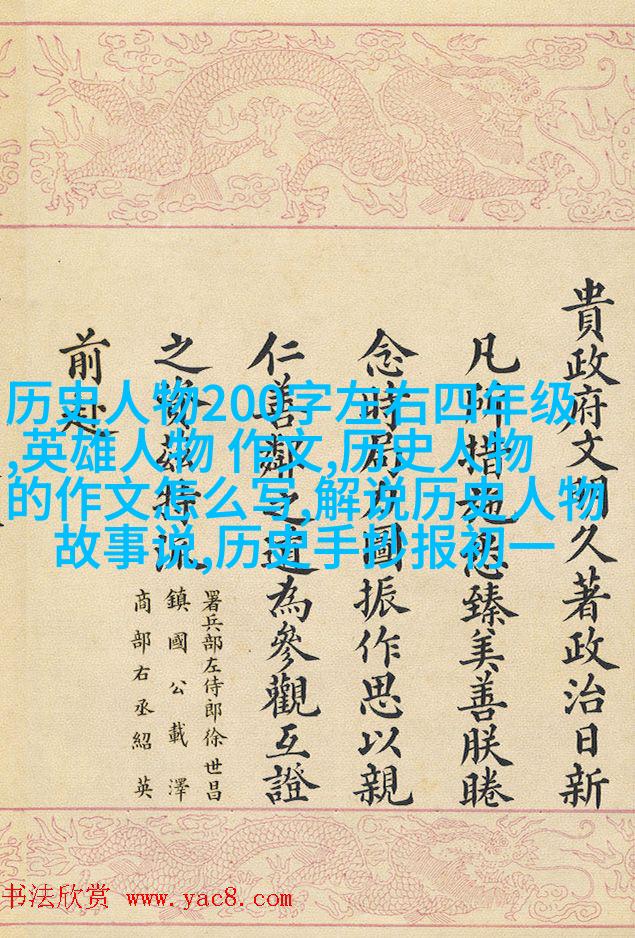 历史人物200字左右四年级
,英雄人物 作文,历史人物
的作文怎么写,解说历史人物
故事说,历史手抄报初一
貴政府文明久著政治日新
凡所措施悉臻美善朕睠
念時局力圖振作思以親
仁善鄰之道為參觀互證
之資茲特派
署兵部左侍郎徐世昌
鎮國公載澤
商部右丞紹英
前赴
书法欣赏 www.yac8.com